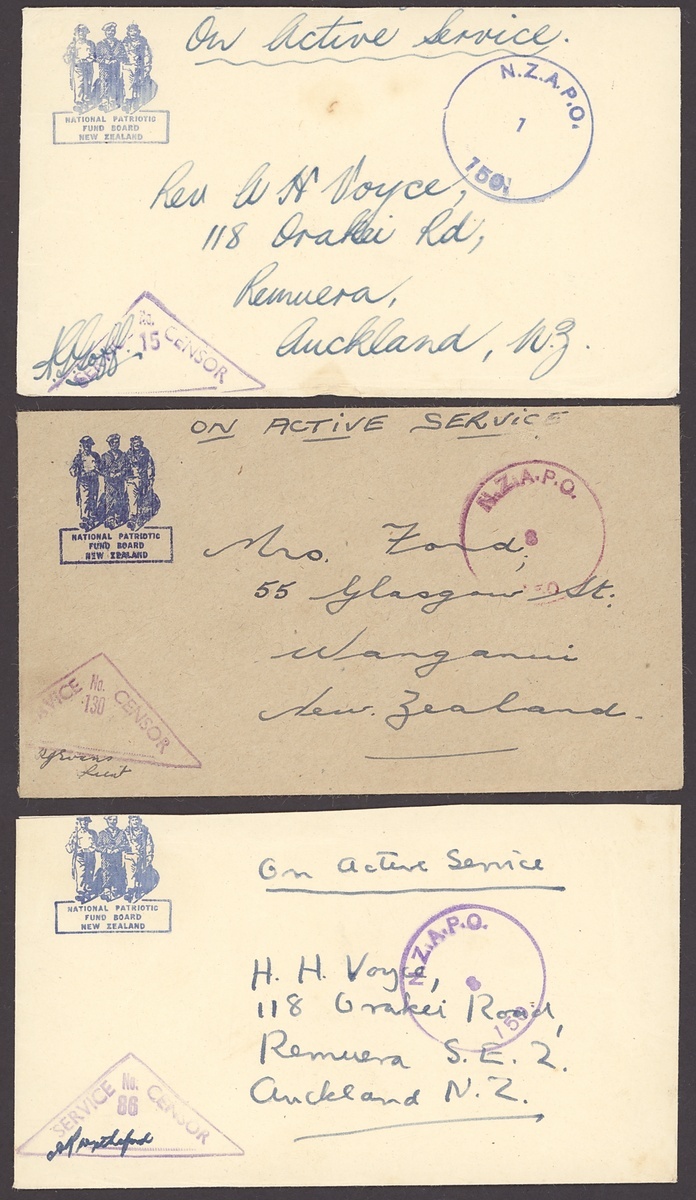 On Active Service.
NATIONAL PATRIOTIC
FUND BOARD
NEW ZEALAND
N.Z.A.P.O.
1
150
Rev A H Voyce,
118 Orakei Rd,
Remuera,
Auckland, N.Z.
SERVICE No. 15 CENSOR
ON ACTIVE SERVICE
NATIONAL PATRIOTIC
FUND BOARD
NEW ZEALAND
N.Z.A.P.O.
8
Mrs. Ford,
55 Glasgow St.
Wanganui
New Zealand.
VICE No. 130 CENSOR
On Active Service
NATIONAL PATRIOTIC
FUND BOARD
NEW ZEALAND
N.Z.A.P.O.
150
H. H. Voyce,
118 Orakei Road,
Remuera S.E. 2.
Auckland N.Z.
SERVICE No. 86 CENSOR